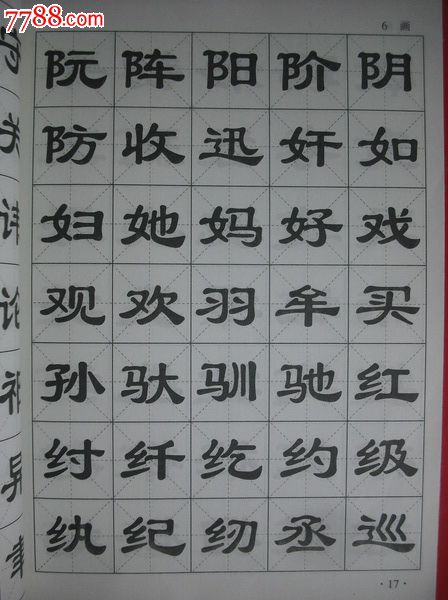 7788.com
6 画
阮阵阳阶阴
防收迅奸如
妇她妈好戏
观欢羽牟买
孙驮驯驰红
纣纤纥约级
纨纪纫丞巡
·17·